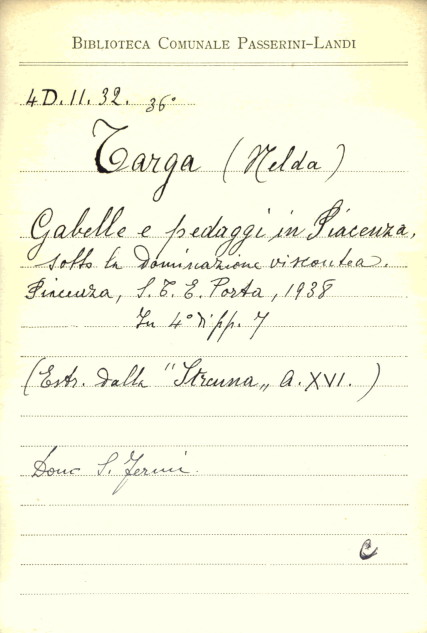 BIBLIOTECA COMUNALE PASSERINI-LANDI
4D.11.32. 36°
Targa (Nelda)
Gabelle e pedaggi in Piacenza,
sotto la dominazione viscontea.
Piacenza, S. T. E. Porta, 1938
In 4° di pp. 7
(Estr. dalla "Strenna„ A. XVI.)
Dono S. Fermi.
C